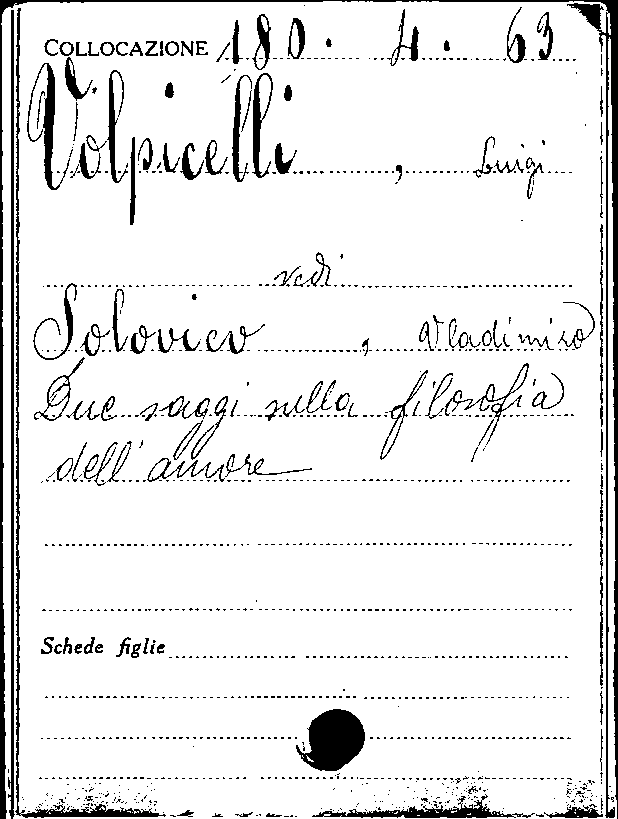 COLLOCAZIONE 180. 4. 63
Volpicelli, Luigi
vedi
Soloviev, Vladimiro
Due saggi sulla filosofia
dell'amore
Schede figlie